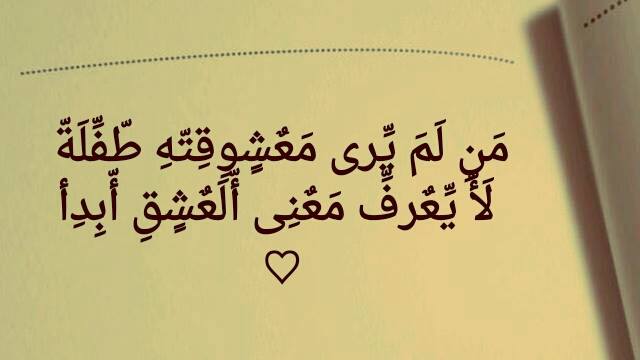 مَنِ لَمَ يِّرى مَعٌشٍوقِتّهِ طّفِّلَةّ
لَأُ يِّعٌرفِّ مَعٌنِى أّلَعٌشٍقِ أّبِدِأ
♡